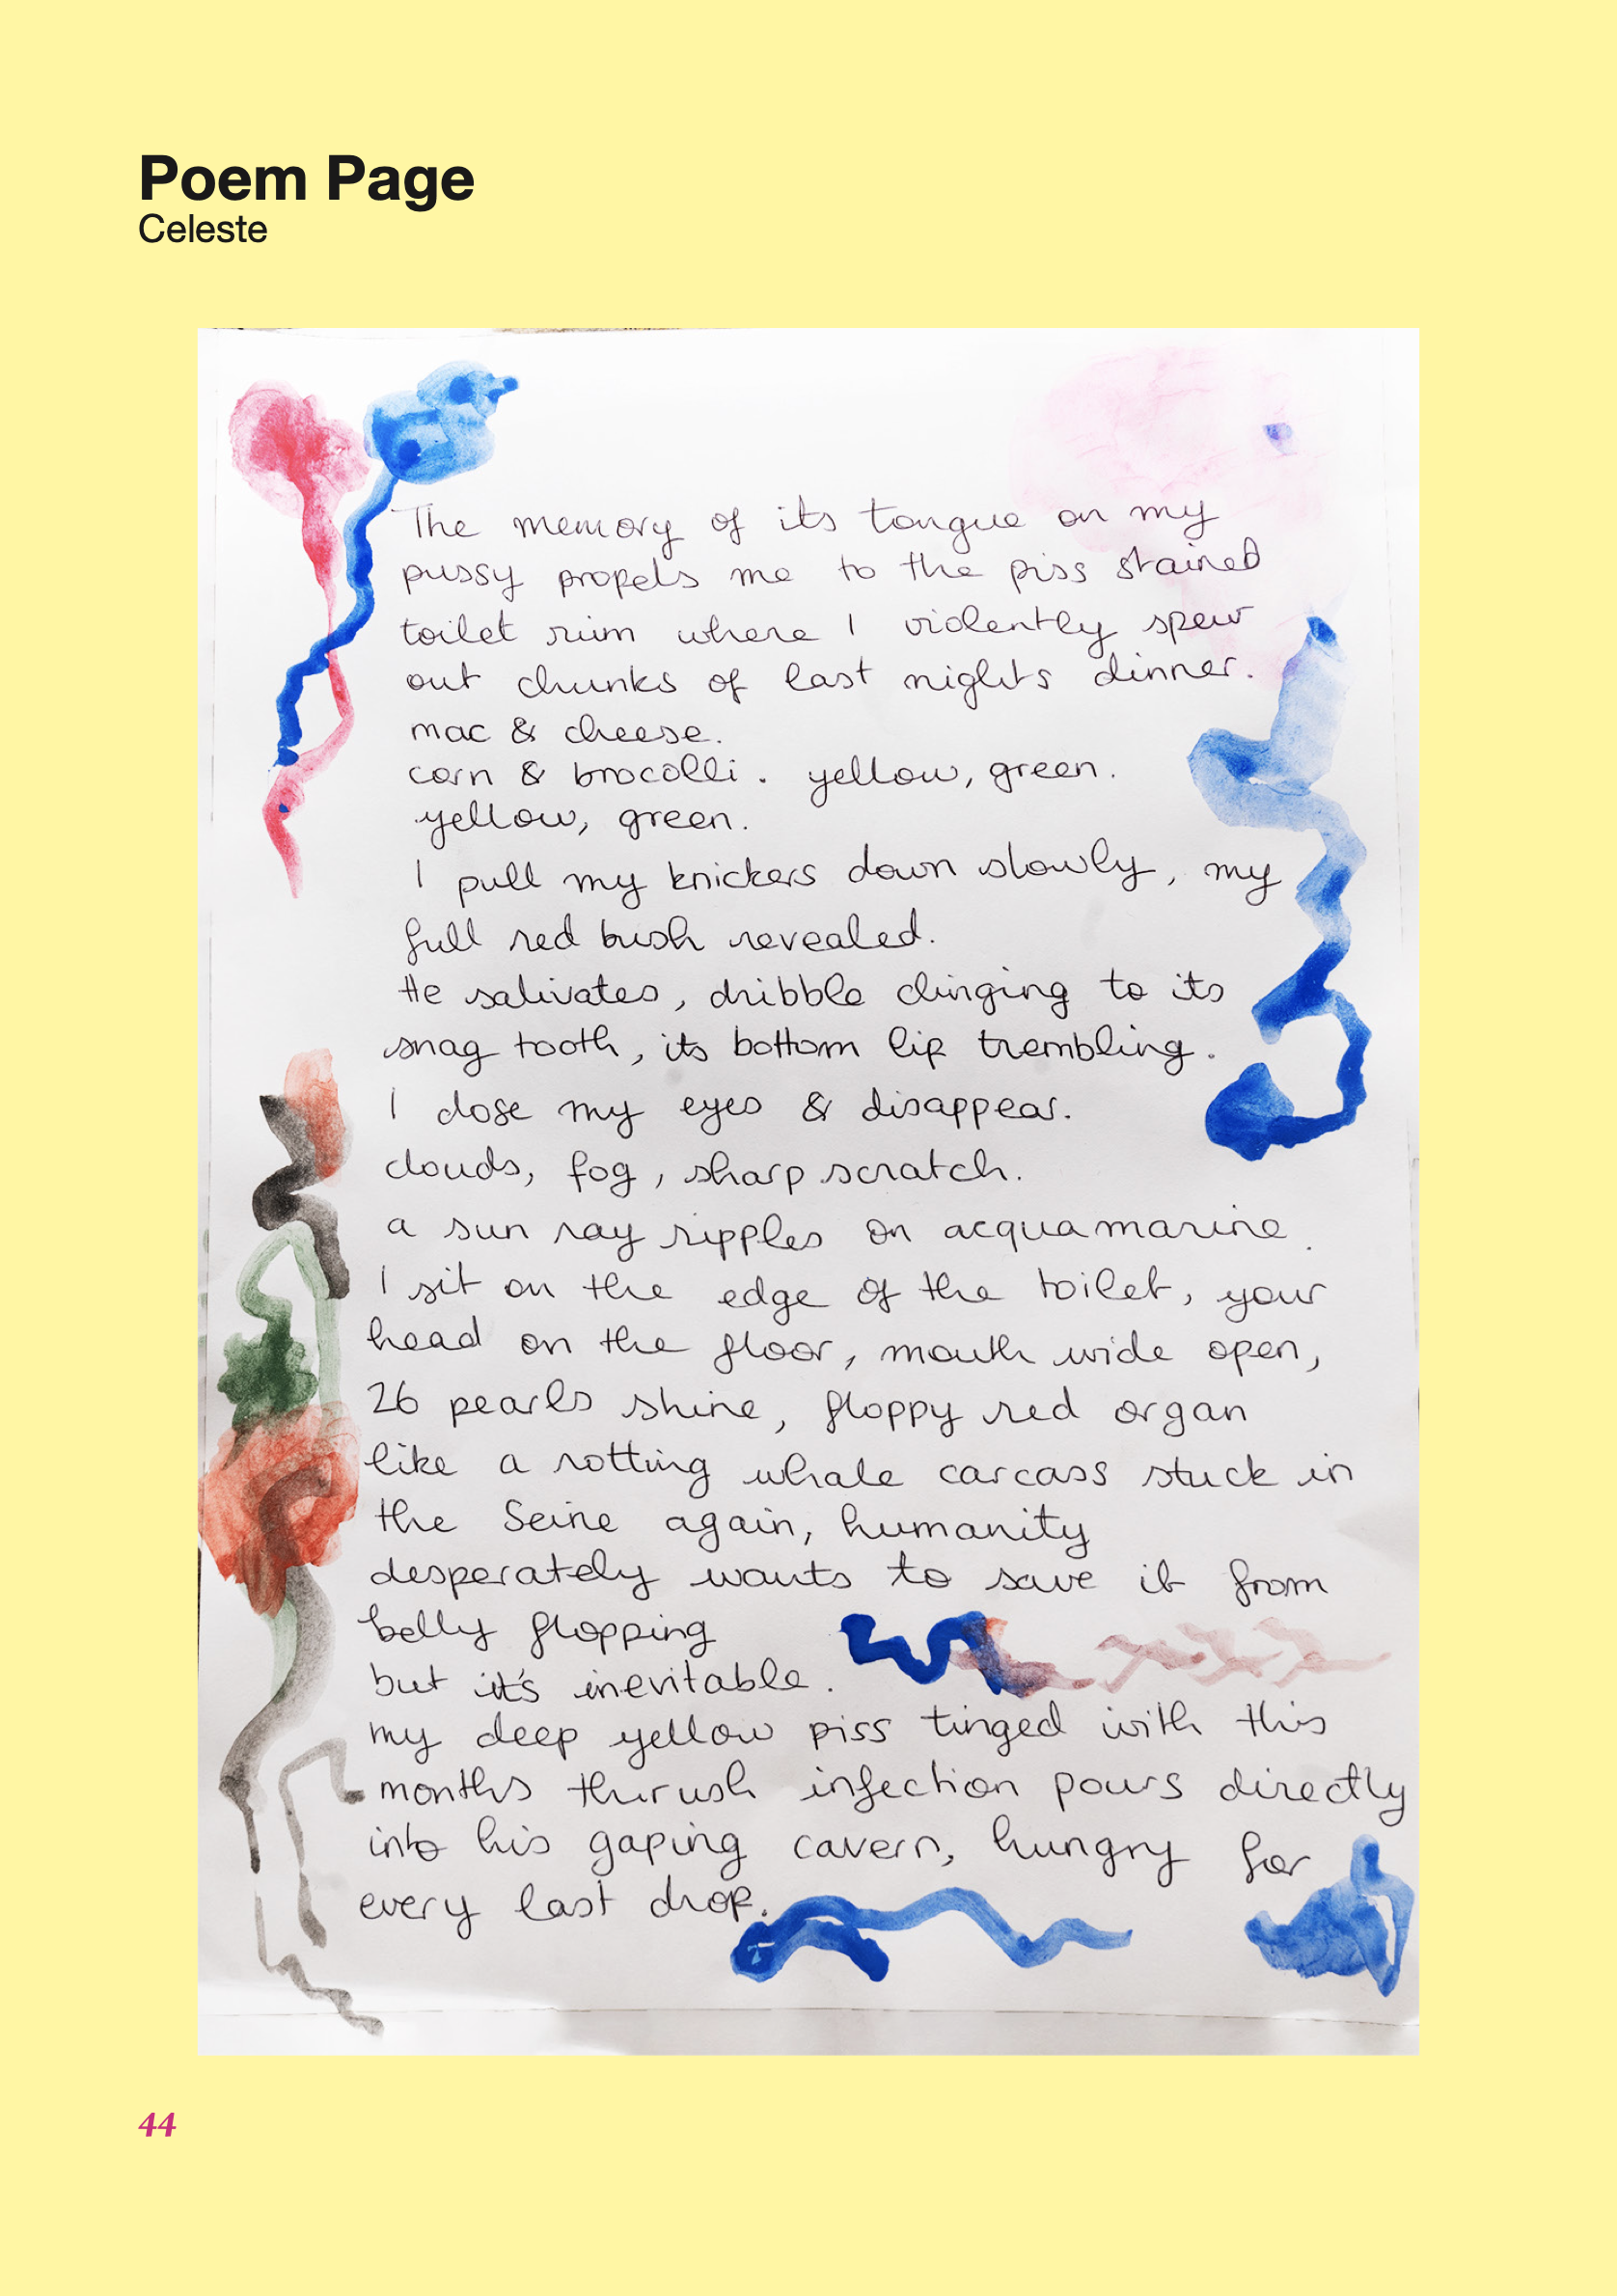 Poem Page
Celeste
The memory of its tongue on my
pussy propels me to the piss stained
toilet rim where I violently spew
out chunks of last nights dinner.
mac & cheese.
corn & brocolli. yellow, green.
yellow, green.
I pull my knickers down slowly, my
full red bush revealed.
He salivates, dribble clinging to its
snag tooth, its bottom lip trembling.
I close my eyes & disappear.
clouds, fog, sharp scratch.
a sun ray ripples on acquamarine.
I sit on the edge of the toilet, your
head on the floor, mouth wide open,
26 pearls shine, floppy red organ
like a rotting whale carcass stuck in
the Seine again, humanity
desperately wants to save it from
belly flopping
but it's inevitable.
my deep yellow piss tinged with this
months thrush infection pours directly
into his gaping cavern, hungry for
every last drop.
44